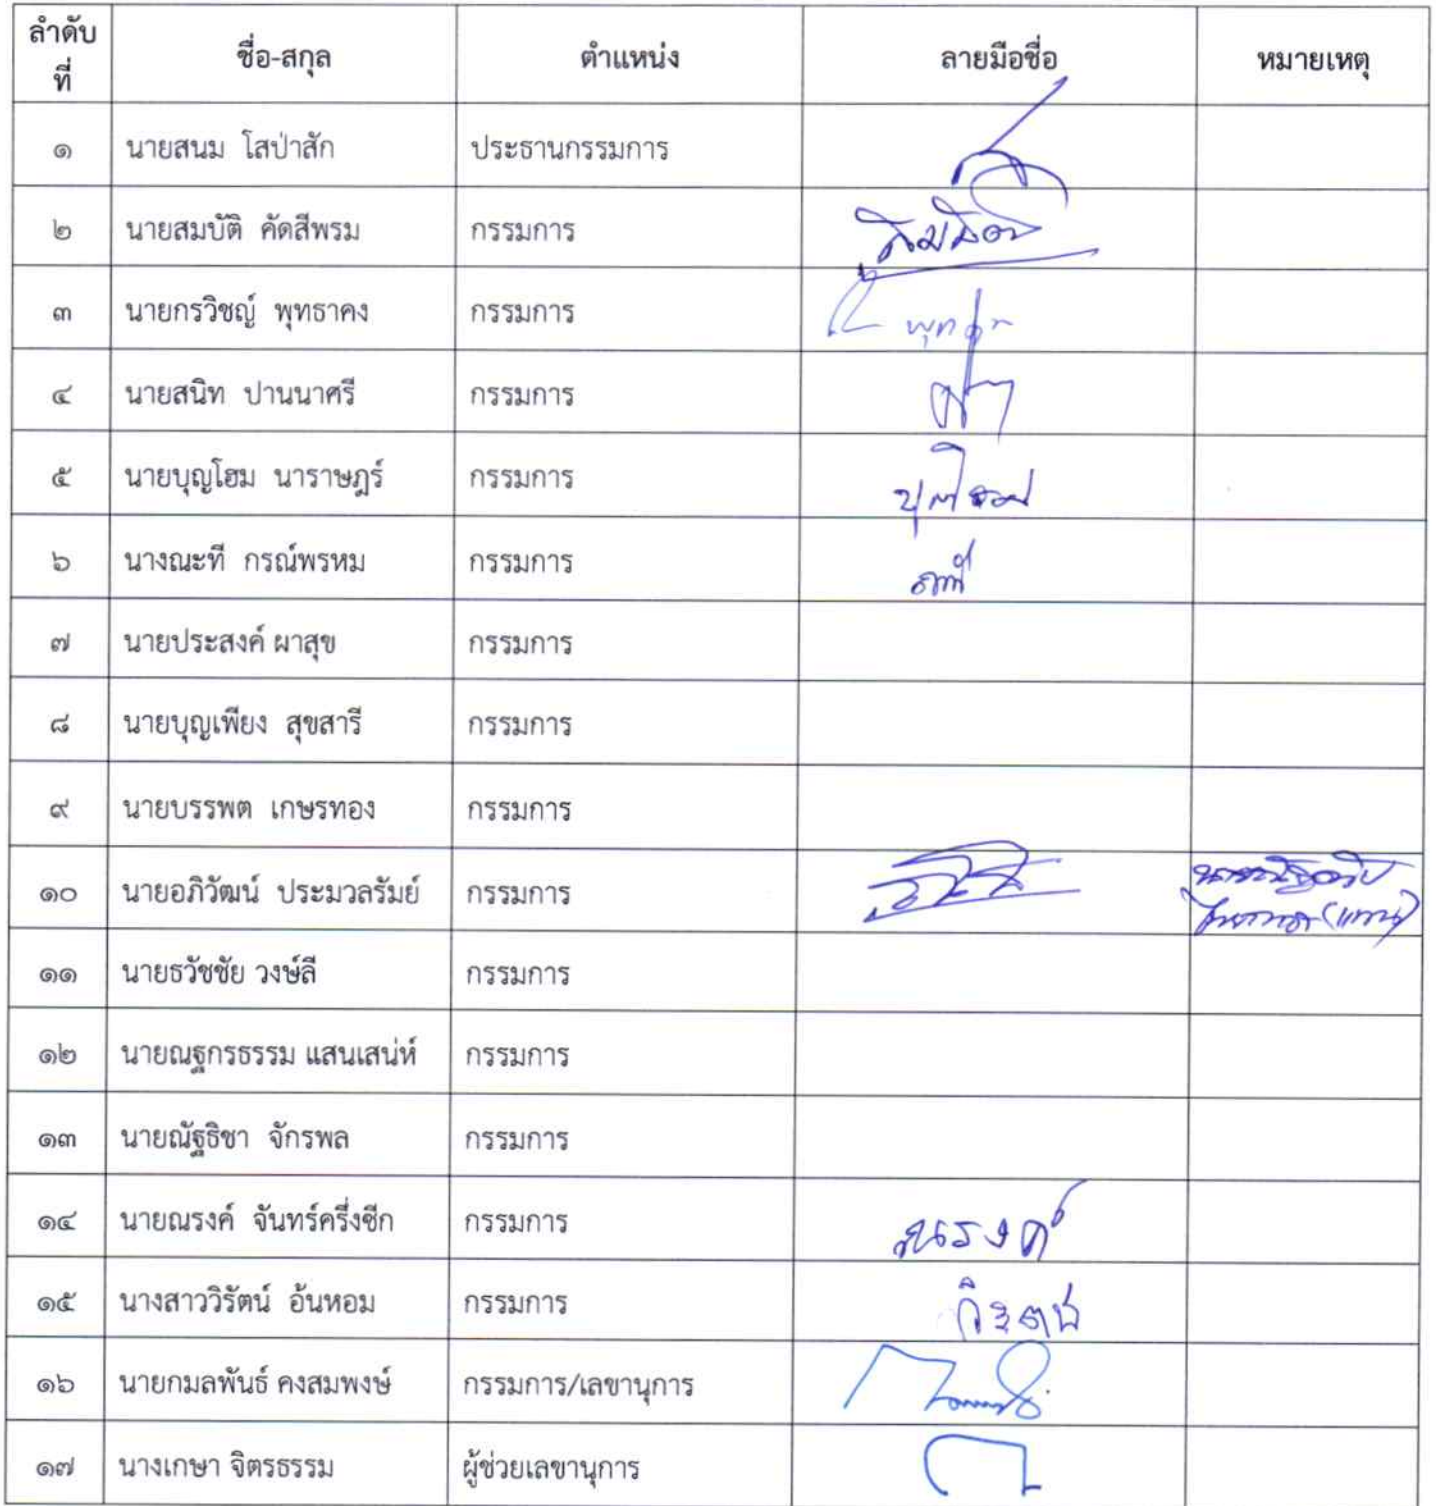 ลำดับ ชื่อ-สกุล ตำแหน่ง ลายมือชื่อ หมายเหตุ
ที่
๑ นายสนม โสป่าสัก ประธานกรรมการ
๒ นายสมบัติ คัดสีพรม กรรมการ
๓ นายกรวิชญ์ พุทธาคง กรรมการ
๔ นายสนิท ปานนาศรี กรรมการ
๕ นายบุญโฮม นาราษฎร์ กรรมการ
๖ นางณะที กรณ์พรหม กรรมการ
๗ นายประสงค์ ผาสุข กรรมการ
๘ นายบุญเพียง สุขสารี กรรมการ
๙ นายบรรพต เกษรทอง กรรมการ
๑๐ นายอภิวัฒน์ ประมวลรัมย์ กรรมการ
(แทน)
๑๑ นายธวัชชัย วงษ์ลี กรรมการ
๑๒ นายณฐกรธรรม แสนเสน่ห์ กรรมการ
๑๓ นายณัฐธิชา จักรพล กรรมการ
๑๔ นายณรงค์ จันทร์ครึ่งซีก กรรมการ ณรงค์
๑๕ นางสาววิรัตน์ อ้นหอม กรรมการ วิรัตน์
๑๖ นายกมลพันธ์ คงสมพงษ์ กรรมการ/เลขานุการ
๑๗ นางเกษา จิตรธรรม ผู้ช่วยเลขานุการ